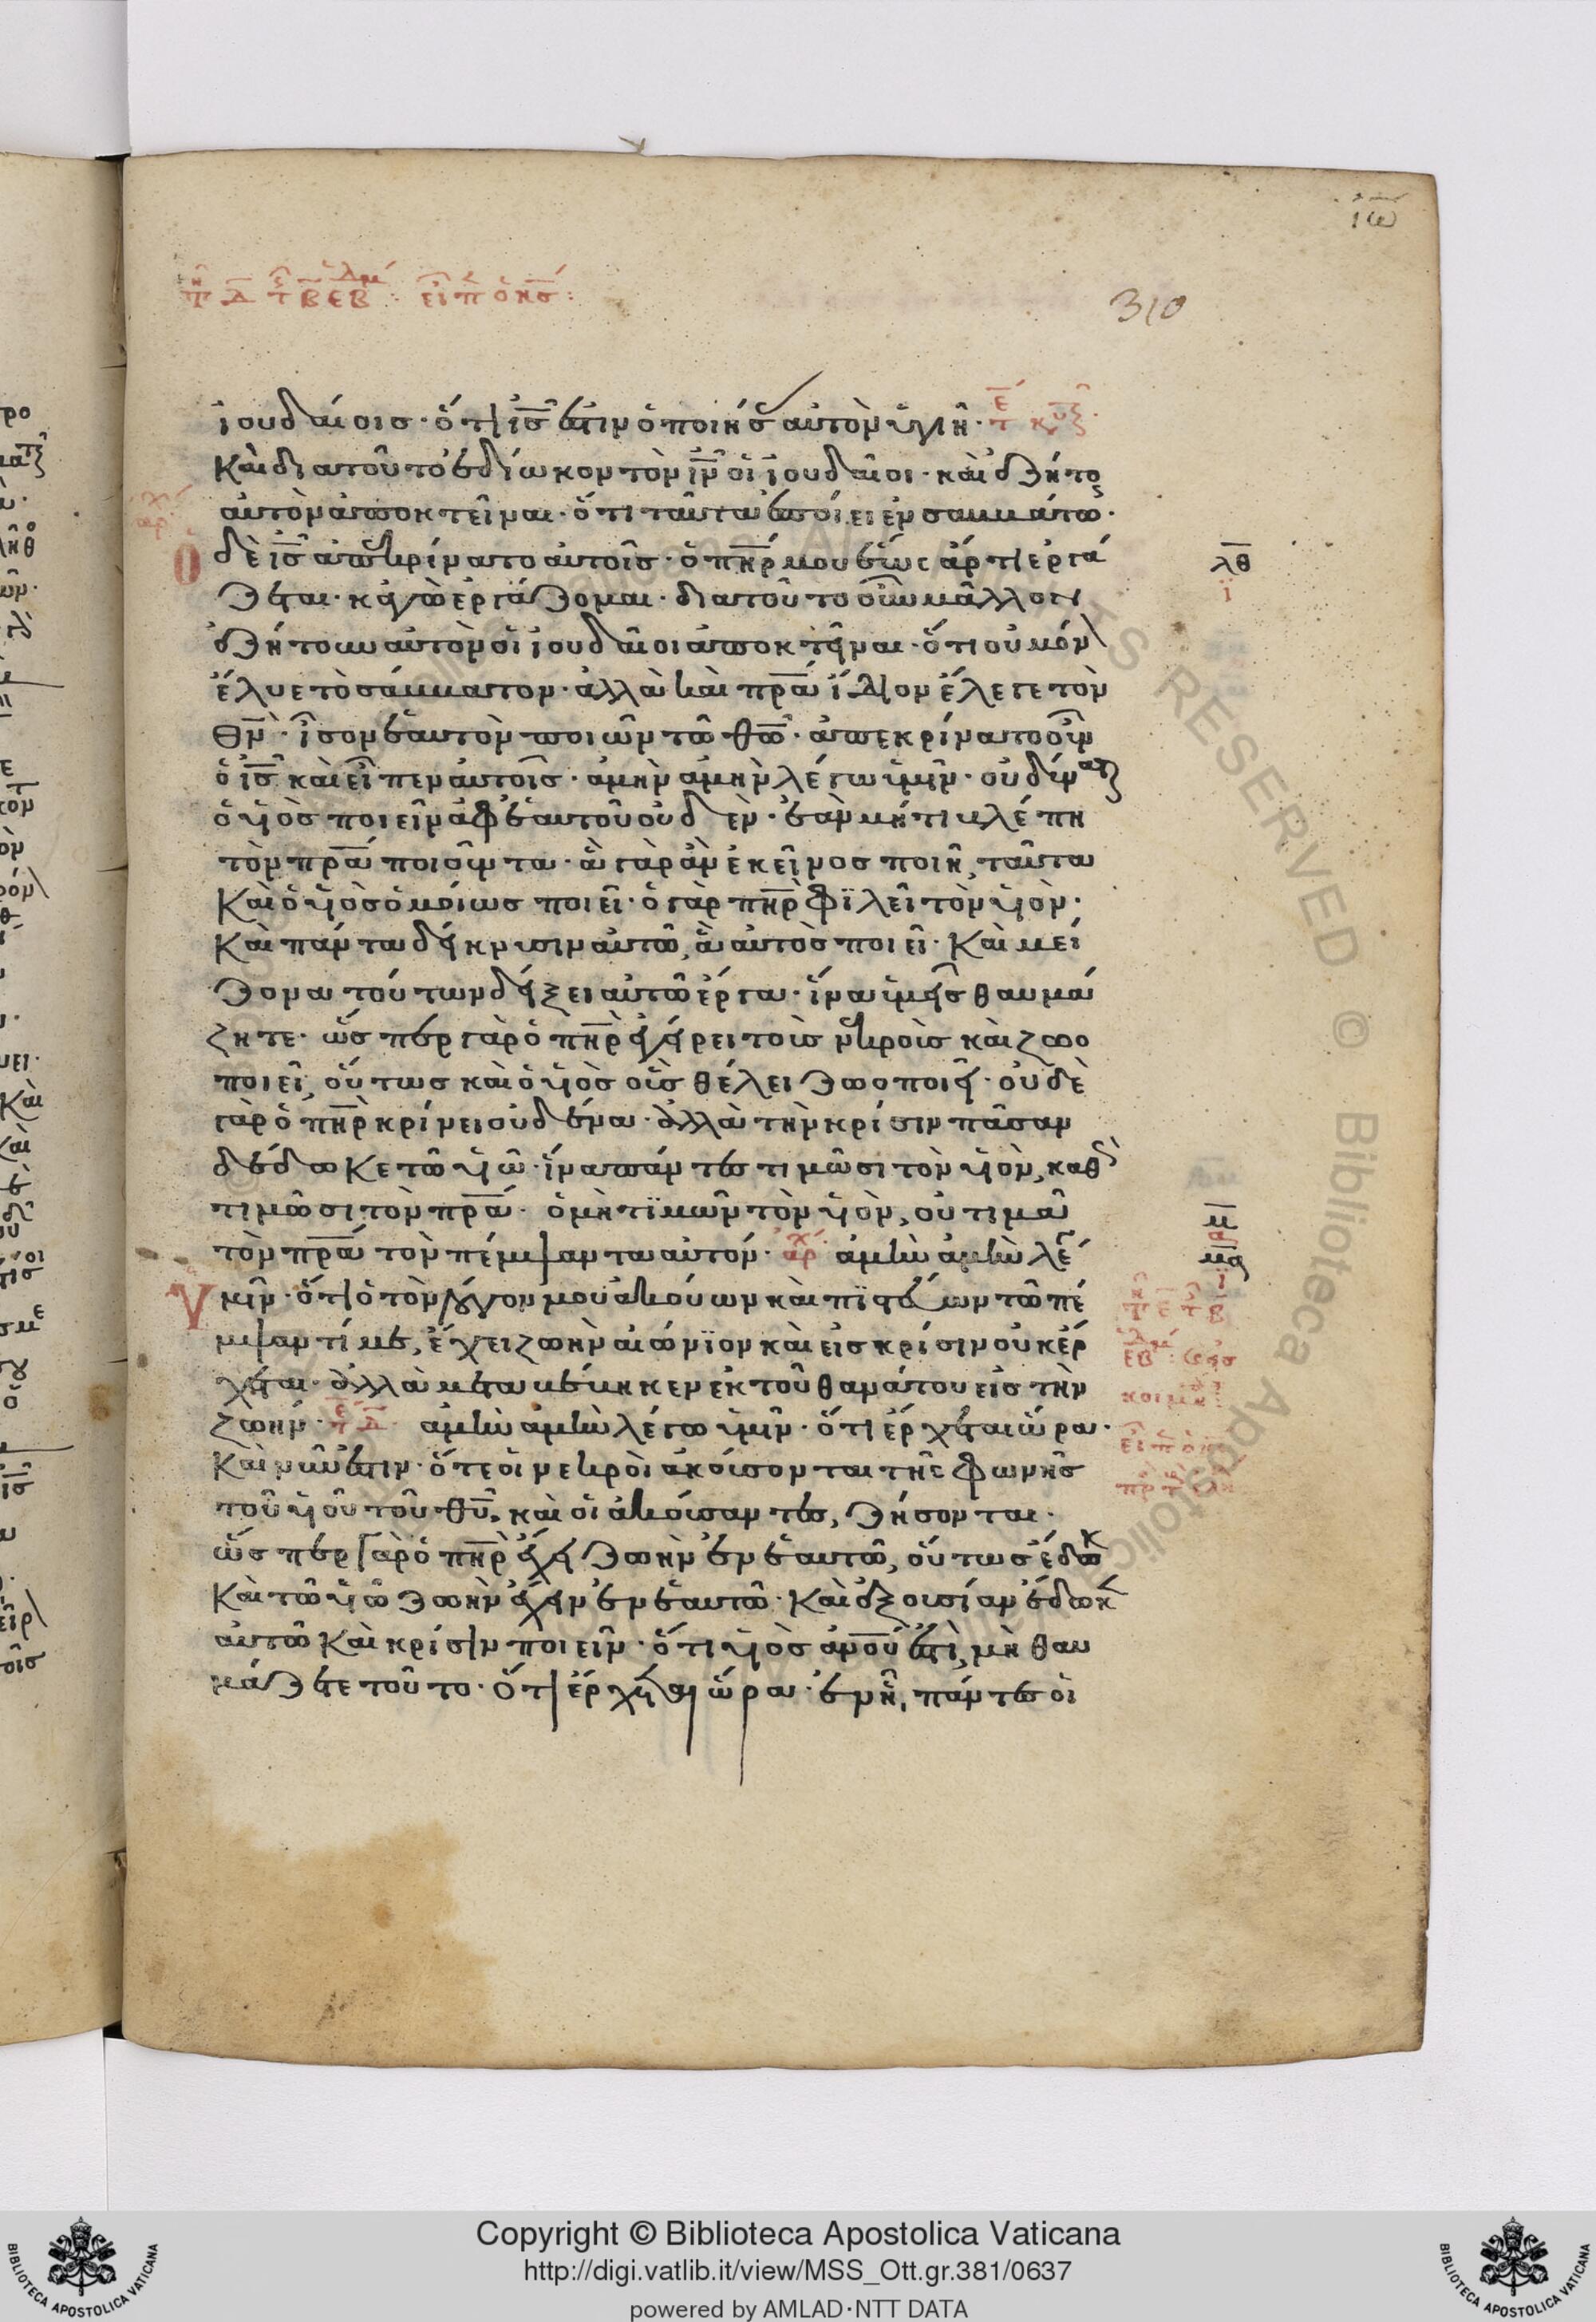 ἰω
τῇ δ τῆς β ἑβδμά: εἶπεν ὁ κσ:
310
ἰουδαίοις· ὅτι ἰς ἐστιν ὁ ποιήσας αὐτὸν ὑγιῆ·
Καὶ διατοῦτο ἐδίωκον τὸν ἰν οἱ ἰουδαῖοι· καὶ ἐζήτουν
αὐτὸν ἀποκτεῖναι· ὅτι ταῦτα ἐποίει ἐν σαββάτω·
Ὁ δὲ ἰς ἀπεκρίνατο αὐτοῖς· ὁ πηρ μου ἕως ἄρτι ἐργά
λθ
ζεται· κἀγὼ ἐργάζομαι· διατοῦτο οὖν μᾶλλον
ἐζήτουν αὐτὸν οἱ ἰουδαῖοι ἀποκτεῖναι· ὅτι οὐ μόν
ἔλυε τὸ σάββατον· ἀλλὰ καὶ πρα ἴδιον ἔλεγε τὸν
θν· ἶσον ἑαυτὸν ποιῶν τῶ θω· ἀπεκρίνατο οὖν
ὁ ἰς καὶ εἶπεν αὐτοῖς· ἀμὴν ἀμὴν λέγω ὑμῖν· οὐ δύναται
ὁ υἱὸς ποιεῖν ἀφ ἑαυτοῦ οὐδέν· ἐὰν μή τι βλέπη
τὸν πρα ποιοῦντα· ἃ γὰρ ἂν ἐκεῖνος ποιῆ, ταῦτα
Καὶ ὁ υἱὸς ὁμοίως ποιεῖ· ὁ γὰρ πηρ φϊλεῖ τὸν υἱόν·
Καὶ πάντα δείκνυσιν αὐτῶ, ἃ αὐτὸς ποιεῖ· Καὶ μεί
ζονα τούτων δείξει αὐτῶ ἔργα· ἵνα ὑμεῖς θαυμά
ζητε· ὥσπερ γὰρ ὁ πηρ ἐγείρει τοὺς νεκροὺς καὶ ζωο
ποιεῖ, οὕτως καὶ ὁ υἱὸς οὓς θέλει ζωοποιεῖ· οὐδὲ
γὰρ ὁ πηρ κρίνει οὐδένα· ἀλλὰ τὴν κρίσιν πᾶσαν
δέδωκε τῶ υἱῶ· ἵνα πάντες τιμῶσι τὸν υἱόν, καθὼς
τιμῶσι τὸν πρα· ὁ μὴ τϊμῶν τὸν υἱόν, οὐ τιμᾶ
μ
τὸν πρα τὸν πέμψαντα αὐτόν· ἀρχ ἀμὴν ἀμὴν λέγω
μα
Ὑμῖν· ὅτι ὁ τὸν λόγον μου ἀκούων καὶ πϊστεύων τῶ πέ
μψαντί με, ἔχει ζωὴν αἰώνϊον καὶ εἰς κρίσιν οὐκ ἔρ
χεται· ἀλλὰ μεταβέβηκεν ἐκ τοῦ θανάτου εἰς τὴν
ζωήν· ἀμὴν ἀμὴν λέγω ὑμῖν· ὅτι ἔρχεται ὥρα·
Καὶ νῦν ἐστιν· ὅτε οἱ νεκροὶ ἀκούσονται τῆς φωνῆς
τοῦ υἱοῦ τοῦ θυ, καὶ οἱ ἀκούσαντες, ζήσονται·
ὥσπερ γὰρ ὁ πηρ ἔχει ζωὴν ἐν ἑαυτῶ, οὕτως ἔδωκ
Καὶ τῶ υἱῶ ζωὴν ἔχειν ἐν ἑαυτῶ· Καὶ ἐξουσίαν ἔδωκ
αὐτῶ καὶ κρίσιν ποιεῖν· ὅτι υἱὸς ἀνου ἐστί, μὴ θαυ
μάζετε τοῦτο· Ὅτι ἔρχεται ὥρα· ἐν ἧ, πάντες οἱ
Copyright © Biblioteca Apostolica Vaticana
http://digi.vatlib.it/view/MSS_Ott.gr.381/0637
powered by AMLAD·NTT DATA